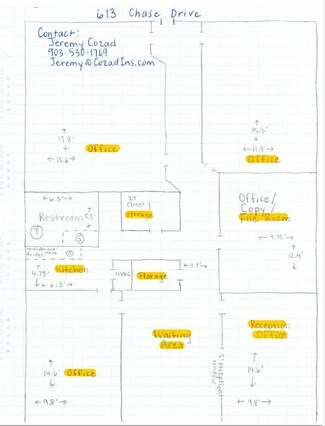 613 Chase Drive
Contact:
Jeremy Cozad
903-530-1769
Jeremy@CozadIns.com
Office
13.6
15.3'
11.9'
Office
6.5'
Restroom
5.5'
IT
Storage
Office/
Copy/
File Room
9.75'
Kitchen
4.75'
6.5'
HVAC
Storage
3.5'
Waiting
Area
Reception
Office
14.6'
Office
9.8'
14.6'
9.8'